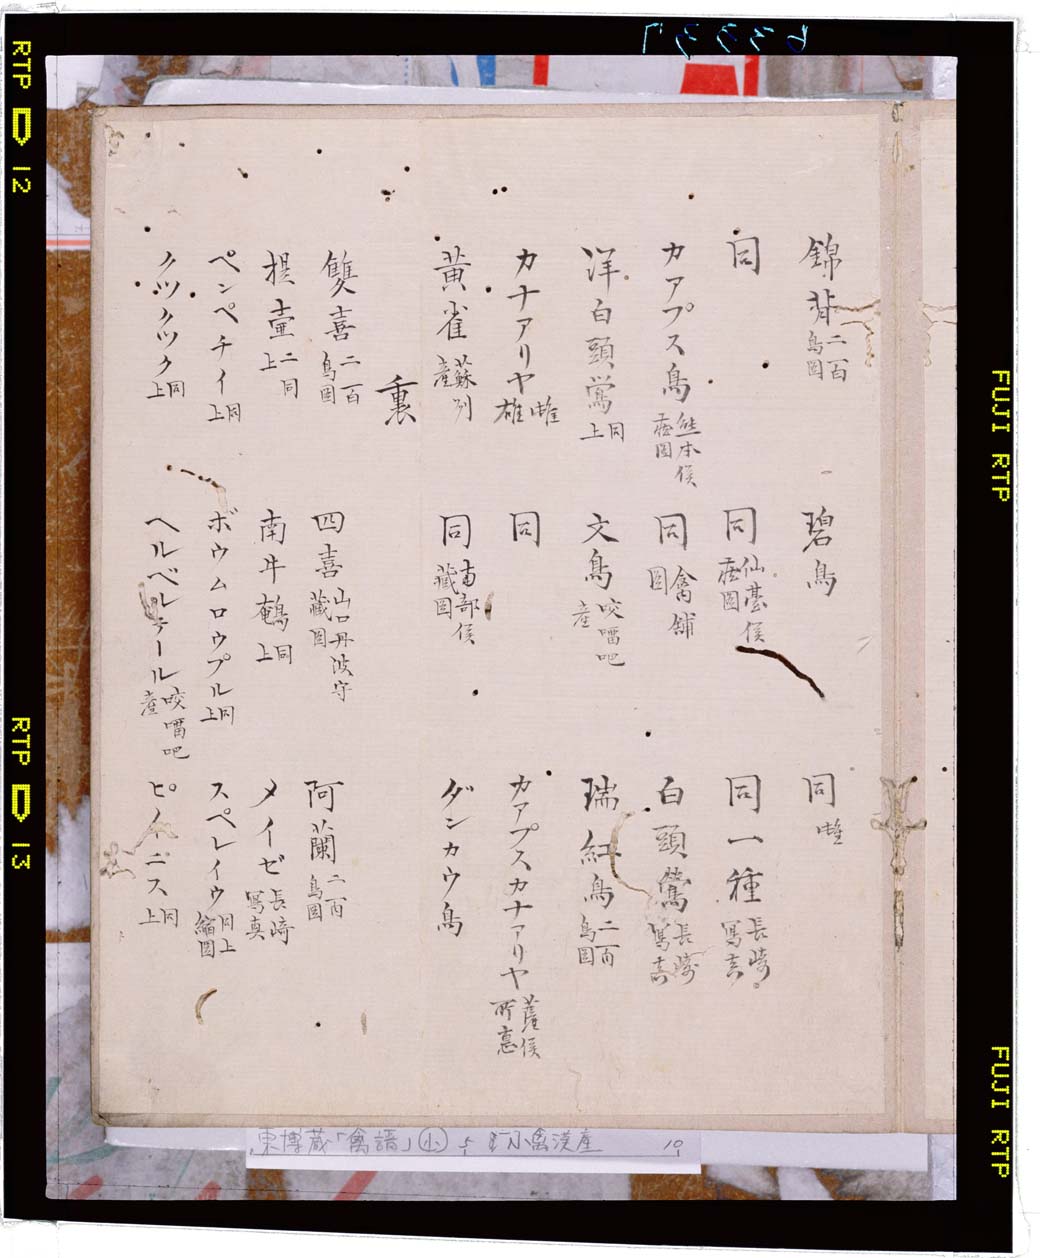 錦背 二百鳥圖
碧鳥
同 雌
同
同 仙臺侯蔵圖
同一種 長崎寫真
カアプス鳥 熊本侯蔵圖
同 禽舗圖
白頭鶯 長崎寫真
洋白頭鶯 同上
文鳥 咬𠺕吧産
瑞紅鳥 二百鳥圖
カナアリヤ 雌雄
同
カアプスカナアリヤ 薩侯所
黄雀 蘇列産
同 南部侯藏圖
ダンカウ鳥
裏
雙喜 二百鳥圖
四喜 山口丹波守藏圖
阿蘭 二百鳥圖
提壷 二同上
南牛鵪 同上
メイゼ 長崎寫真
ペンペチイ 同上
ボウムロウプル 同上
スペレイウ 同上縮圖
クツクツク 同上
ヘルベルテール 咬𠺕吧産
ピノイニス 同上
東博蔵「禽譜」小 5 小禽漢産 10
63337
RTP 12
RTP 13
FUJI RTP
FUJI RTP